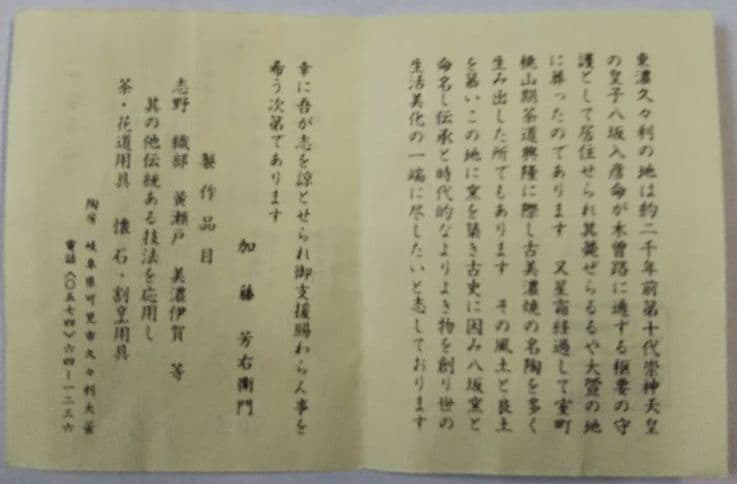 東濃久々利の地は約二千年前第十代崇神天皇
の皇子八坂入彦命が木曽路に通する枢要の守
護として居住せられ其薨ぜらるるや大萱の地
に葬ったのであります 又星霜経過して室町
桃山期茶道興隆に際し古美濃焼の名陶を多く
生み出した所でもあります その風土と良土
を慕いこの地に窯を築き古史に因み八坂窯と
命名し伝承と時代的なよりよき物を創り世の
生活美化の一端に尽したいと志しております
幸に吾が志を諒とせられ御支援賜わらん事を
希う次第であります
加藤芳右衛門
製作品目
志野 織部 黄瀬戸 美濃伊賀 等
其の他伝統ある技法を応用し
茶・花道用具 懐石・割烹用具
陶房 岐阜県可児市久々利大萱
電話〈〇五七四〉六四ー一二三六